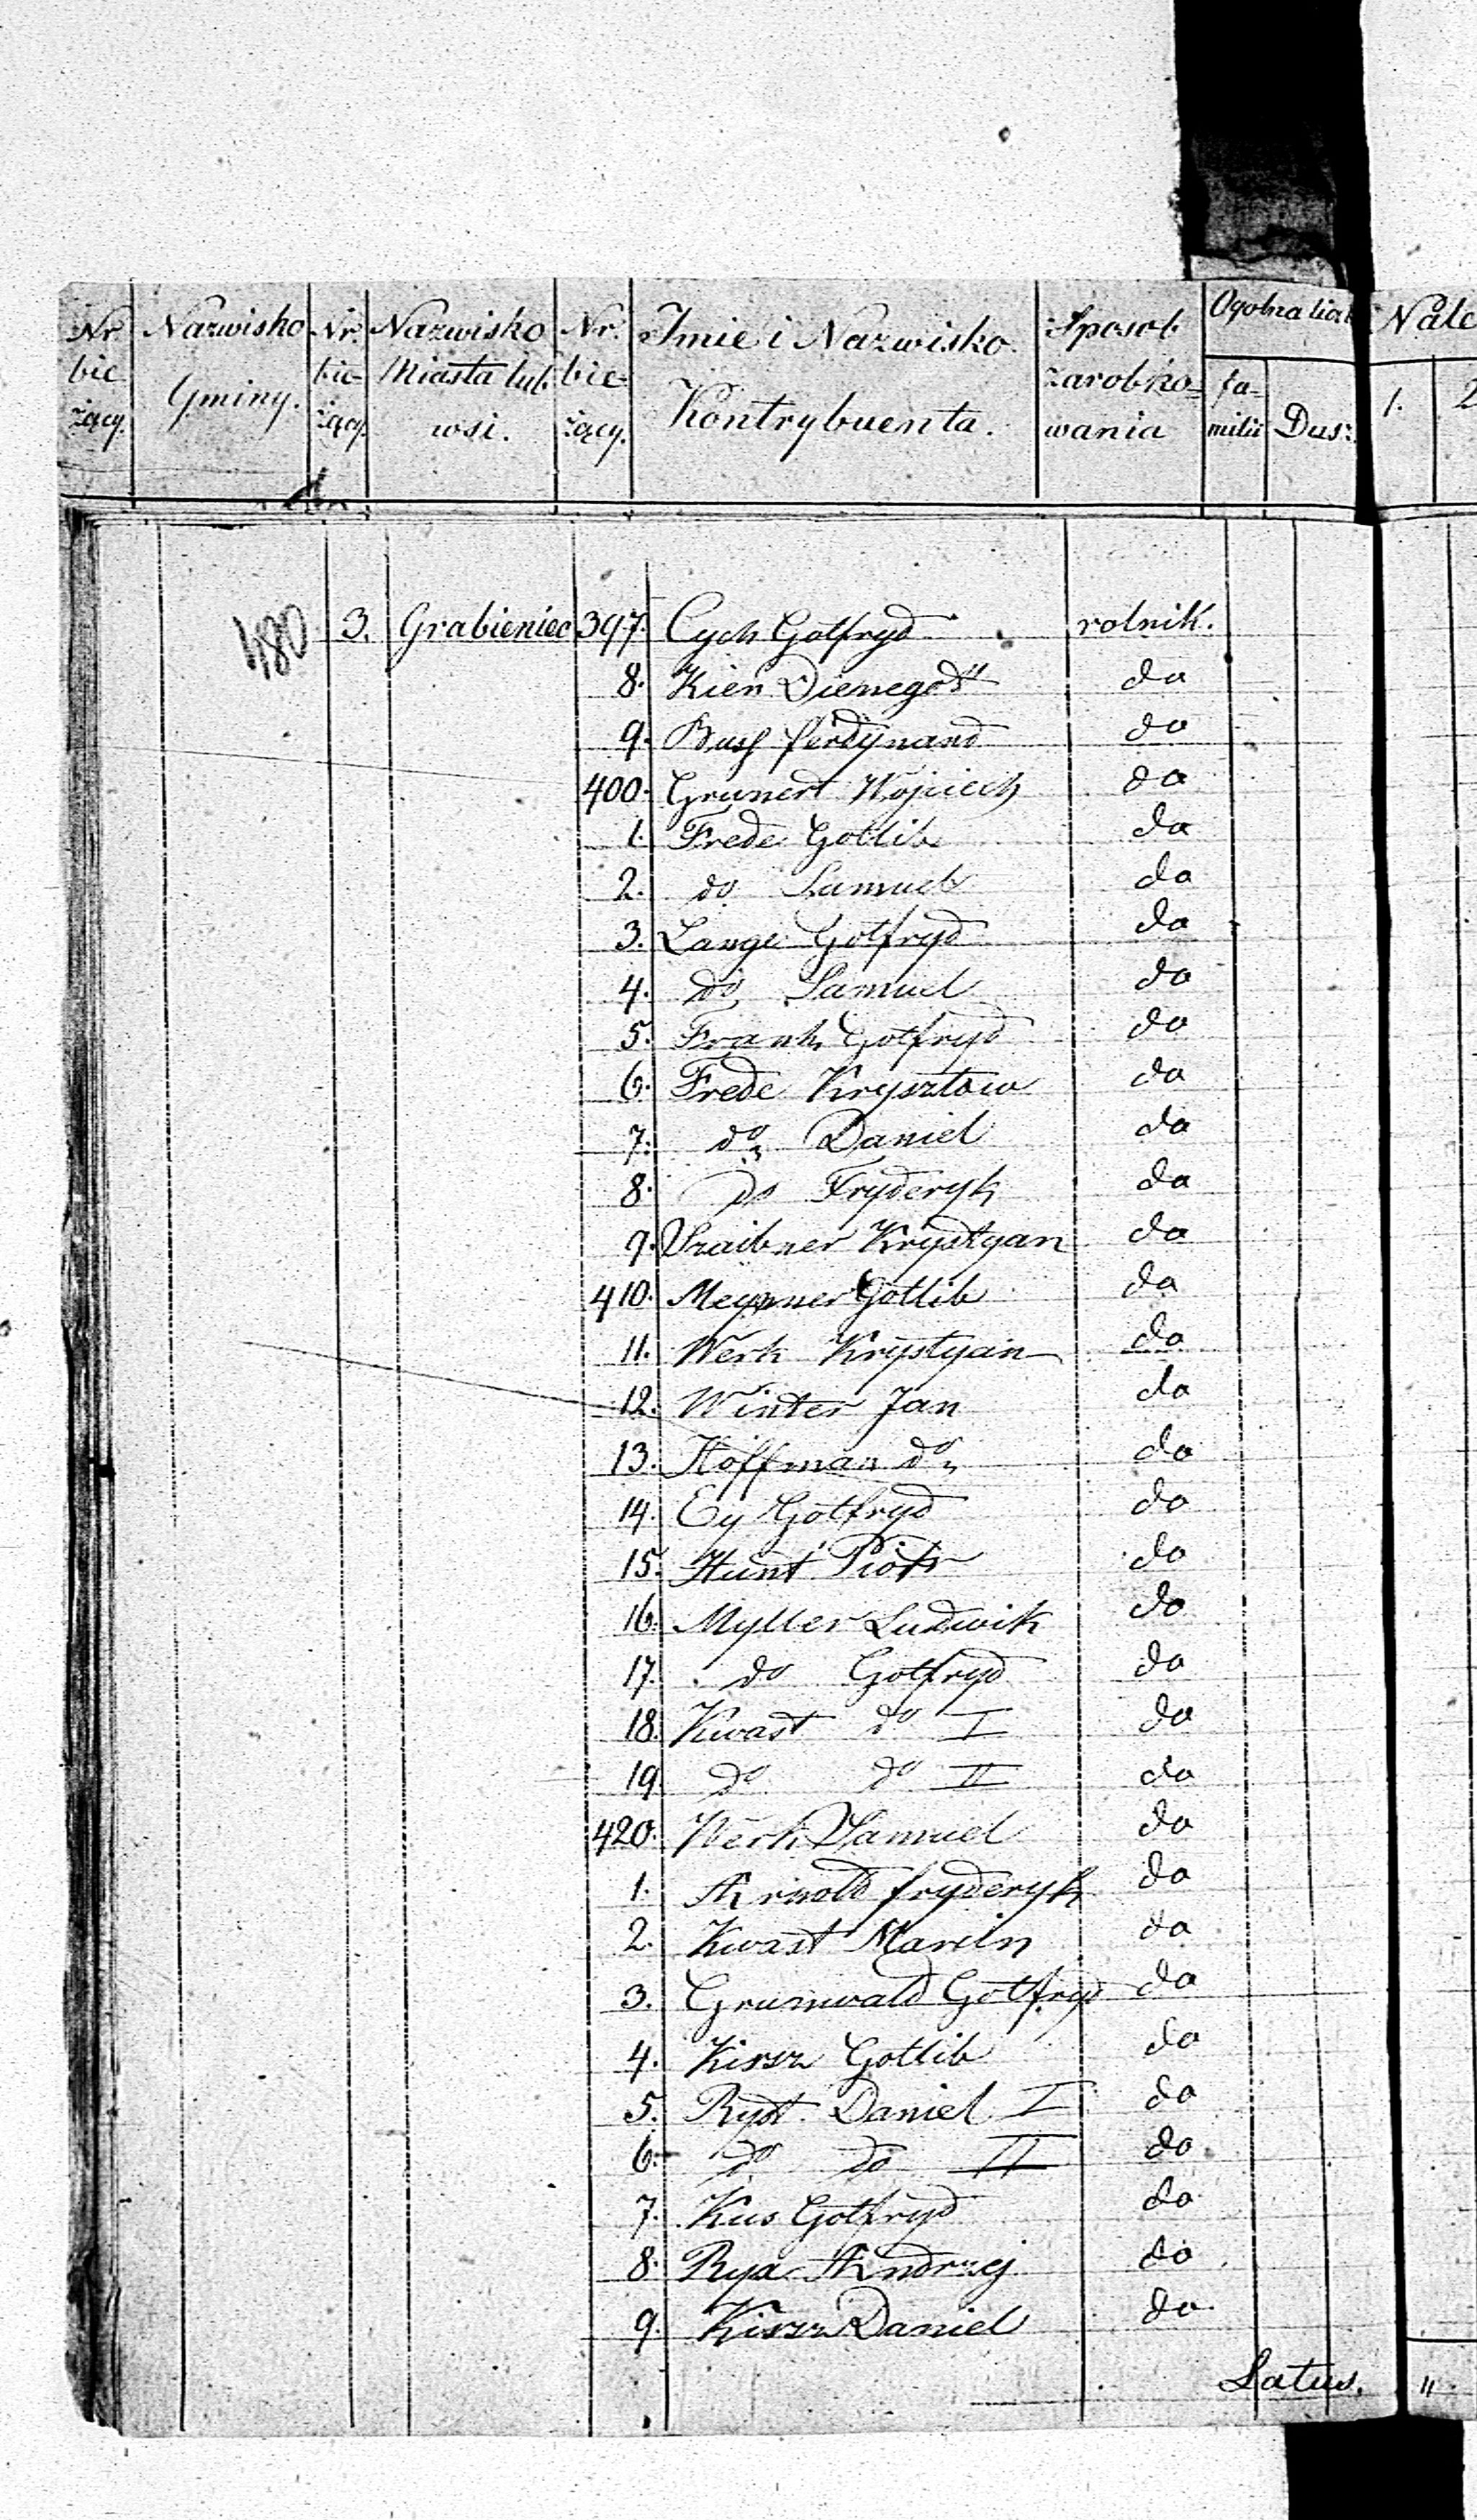 Nr bie żący. Nazwisko Gminy. Nr. bie- żący. Nazwisko Miasta lub wsi. Nr. bie- żący. Imie i Nazwisko Kontrybuenta. Sposob zarobko= wania Ogolna licz fa= milii Dusz Nale 1. 2
480 3. Grabieniec 397. Cych Gotfryd rolnik.
8. Kien Dienegott do
9. Busz ferdynand do
400. Grunert Wojciech do
1. Frede Gotlib do
2. do Samuel do
3. Lange Gotfryd do
4. do Samuel do
5. Frank Gotfryd do
6. Frede Krysztow do
7. do Daniel do
8. do Fryderyk do
9. Szaibner Krystyan do
410. Meyner Gotlib do
11. Werk Krystyan do
12. Winter Jan do
13. Hoffman do do
14. Ey Gotfryd do
15. Hunt Piotr do
16. Myller Ludwik do
17. do Gotfryd do
18. Kwast do I do
19. do do II do
420. Werk Samuel do
1. Arnold fryderyk do
2. Kwast Marcin do
3. Grunwald Gotfryd do
4. Kirsz Gotlib do
5. Ryst. Daniel I do
6. do do II do
7. Kus Gotfryd do
8. Rya Andrzej do
9. Kirsz Daniel do
Latus. "